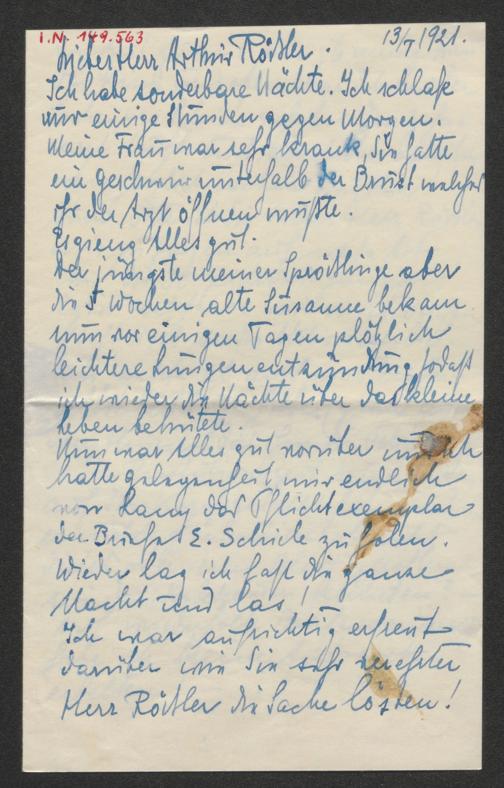 I.N. 149.563
13/I 1921.
Lieber Herr Arthur Rößler.
Ich habe sonderbare Nächte. Ich schlafe
nur einige Stunden gegen Morgen.
Meine Frau war sehr krank, Sie hatte
ein Geschwür unterhalb der Brust welches
ihr der Arzt öffnen mußte.
Es gieng Alles gut.
Der jüngste meiner Sprößlinge aber
die 5 Wochen alte Susanne bekam
nun vor einigen Tagen plötzlich
leichtere Lungenentzündung sodaß
ich wieder die Nächte über das kleine
Leben behütete.
Nun war Alles gut vorüber und ich
hatte gelegenheit mir endlich
von Lany das Pflichtexemplar
der Briefe E. Schiele zu holen.
Wieder lag ich fast die ganze
Nacht und las,
Ich war aufrichtig erfreut
darüber wie Sie sehr verehrter
Herr Rößler die Sache lösten!